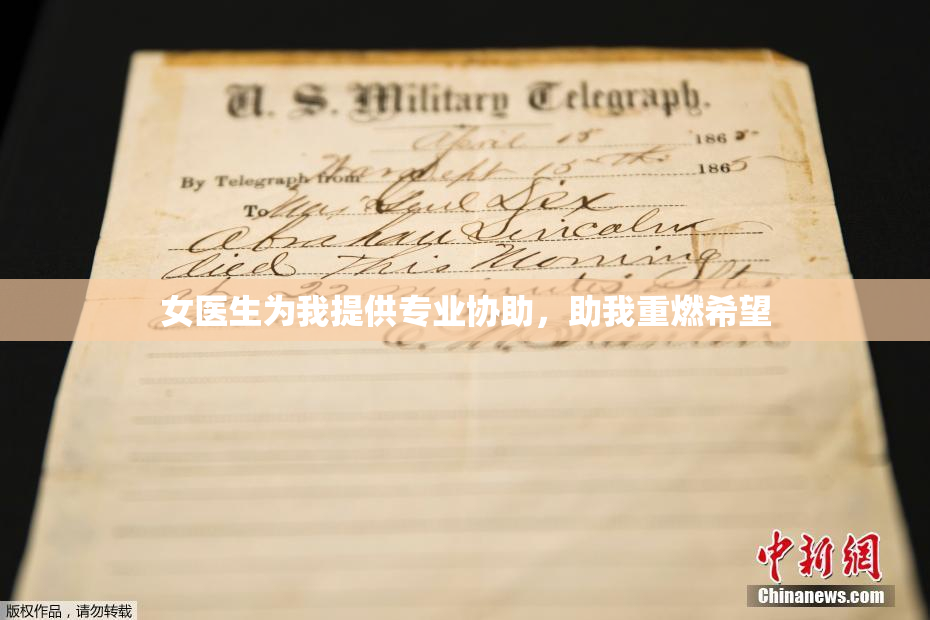 U. S. Military Telegraph.
April 15 1865
By Telegraph from War Dept 15th 1865
To Maj Genl Dix
Abraham Lincoln
died This Morning
at 22 minutes after
女医生为我提供专业协助，助我重燃希望
E. M. Stanton
中新网
Chinanews.com
版权作品，请勿转载